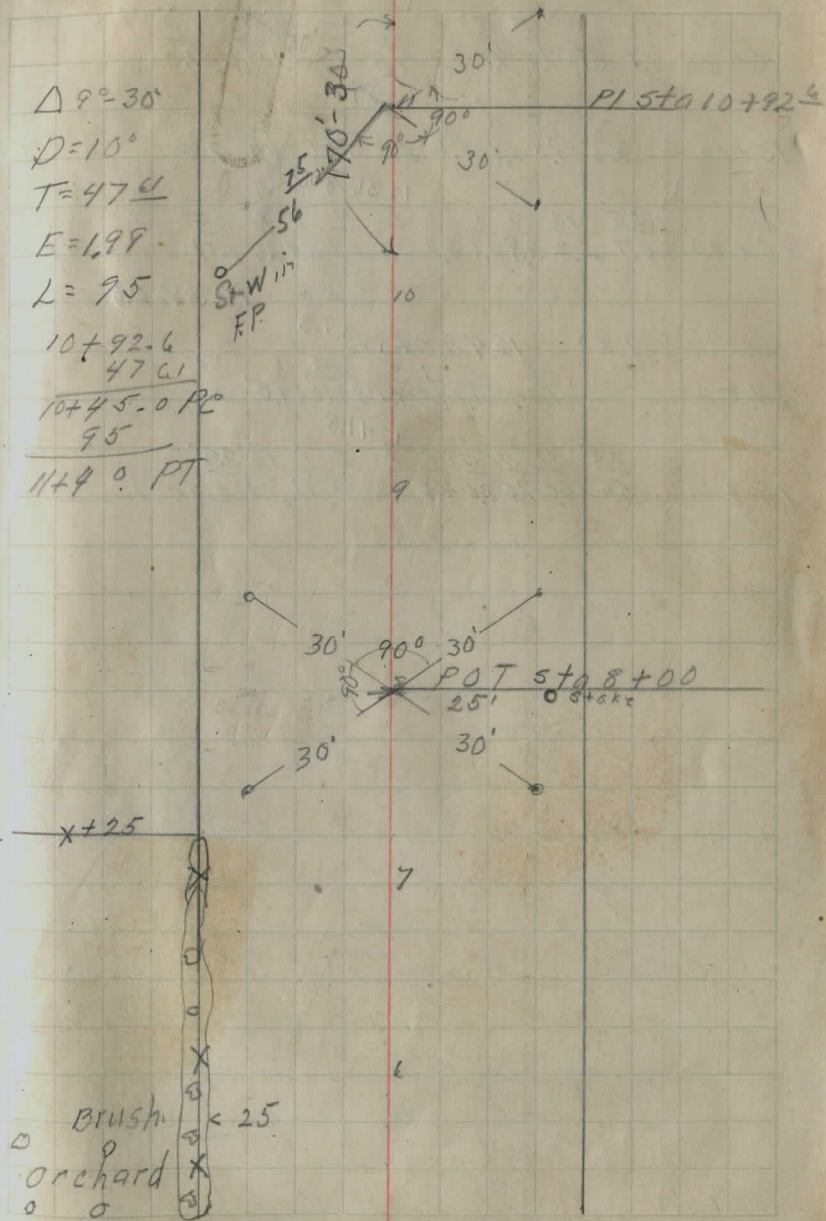 Δ 9°-30'
D=10°
T=47.61
E=1.99
L=95
10+92.6
47 61
10+45.0 PC
95
11+40 PT
30'
170°-30'
PI Sta 10+92.6
90°
90°
30'
75
56
St-W in
F.P.
11
10
9
30'
90°
30'
90°
8
POT Sta 8+00
25'
stake
30'
30'
x+25
7
6
Brush
< 25
Orchard